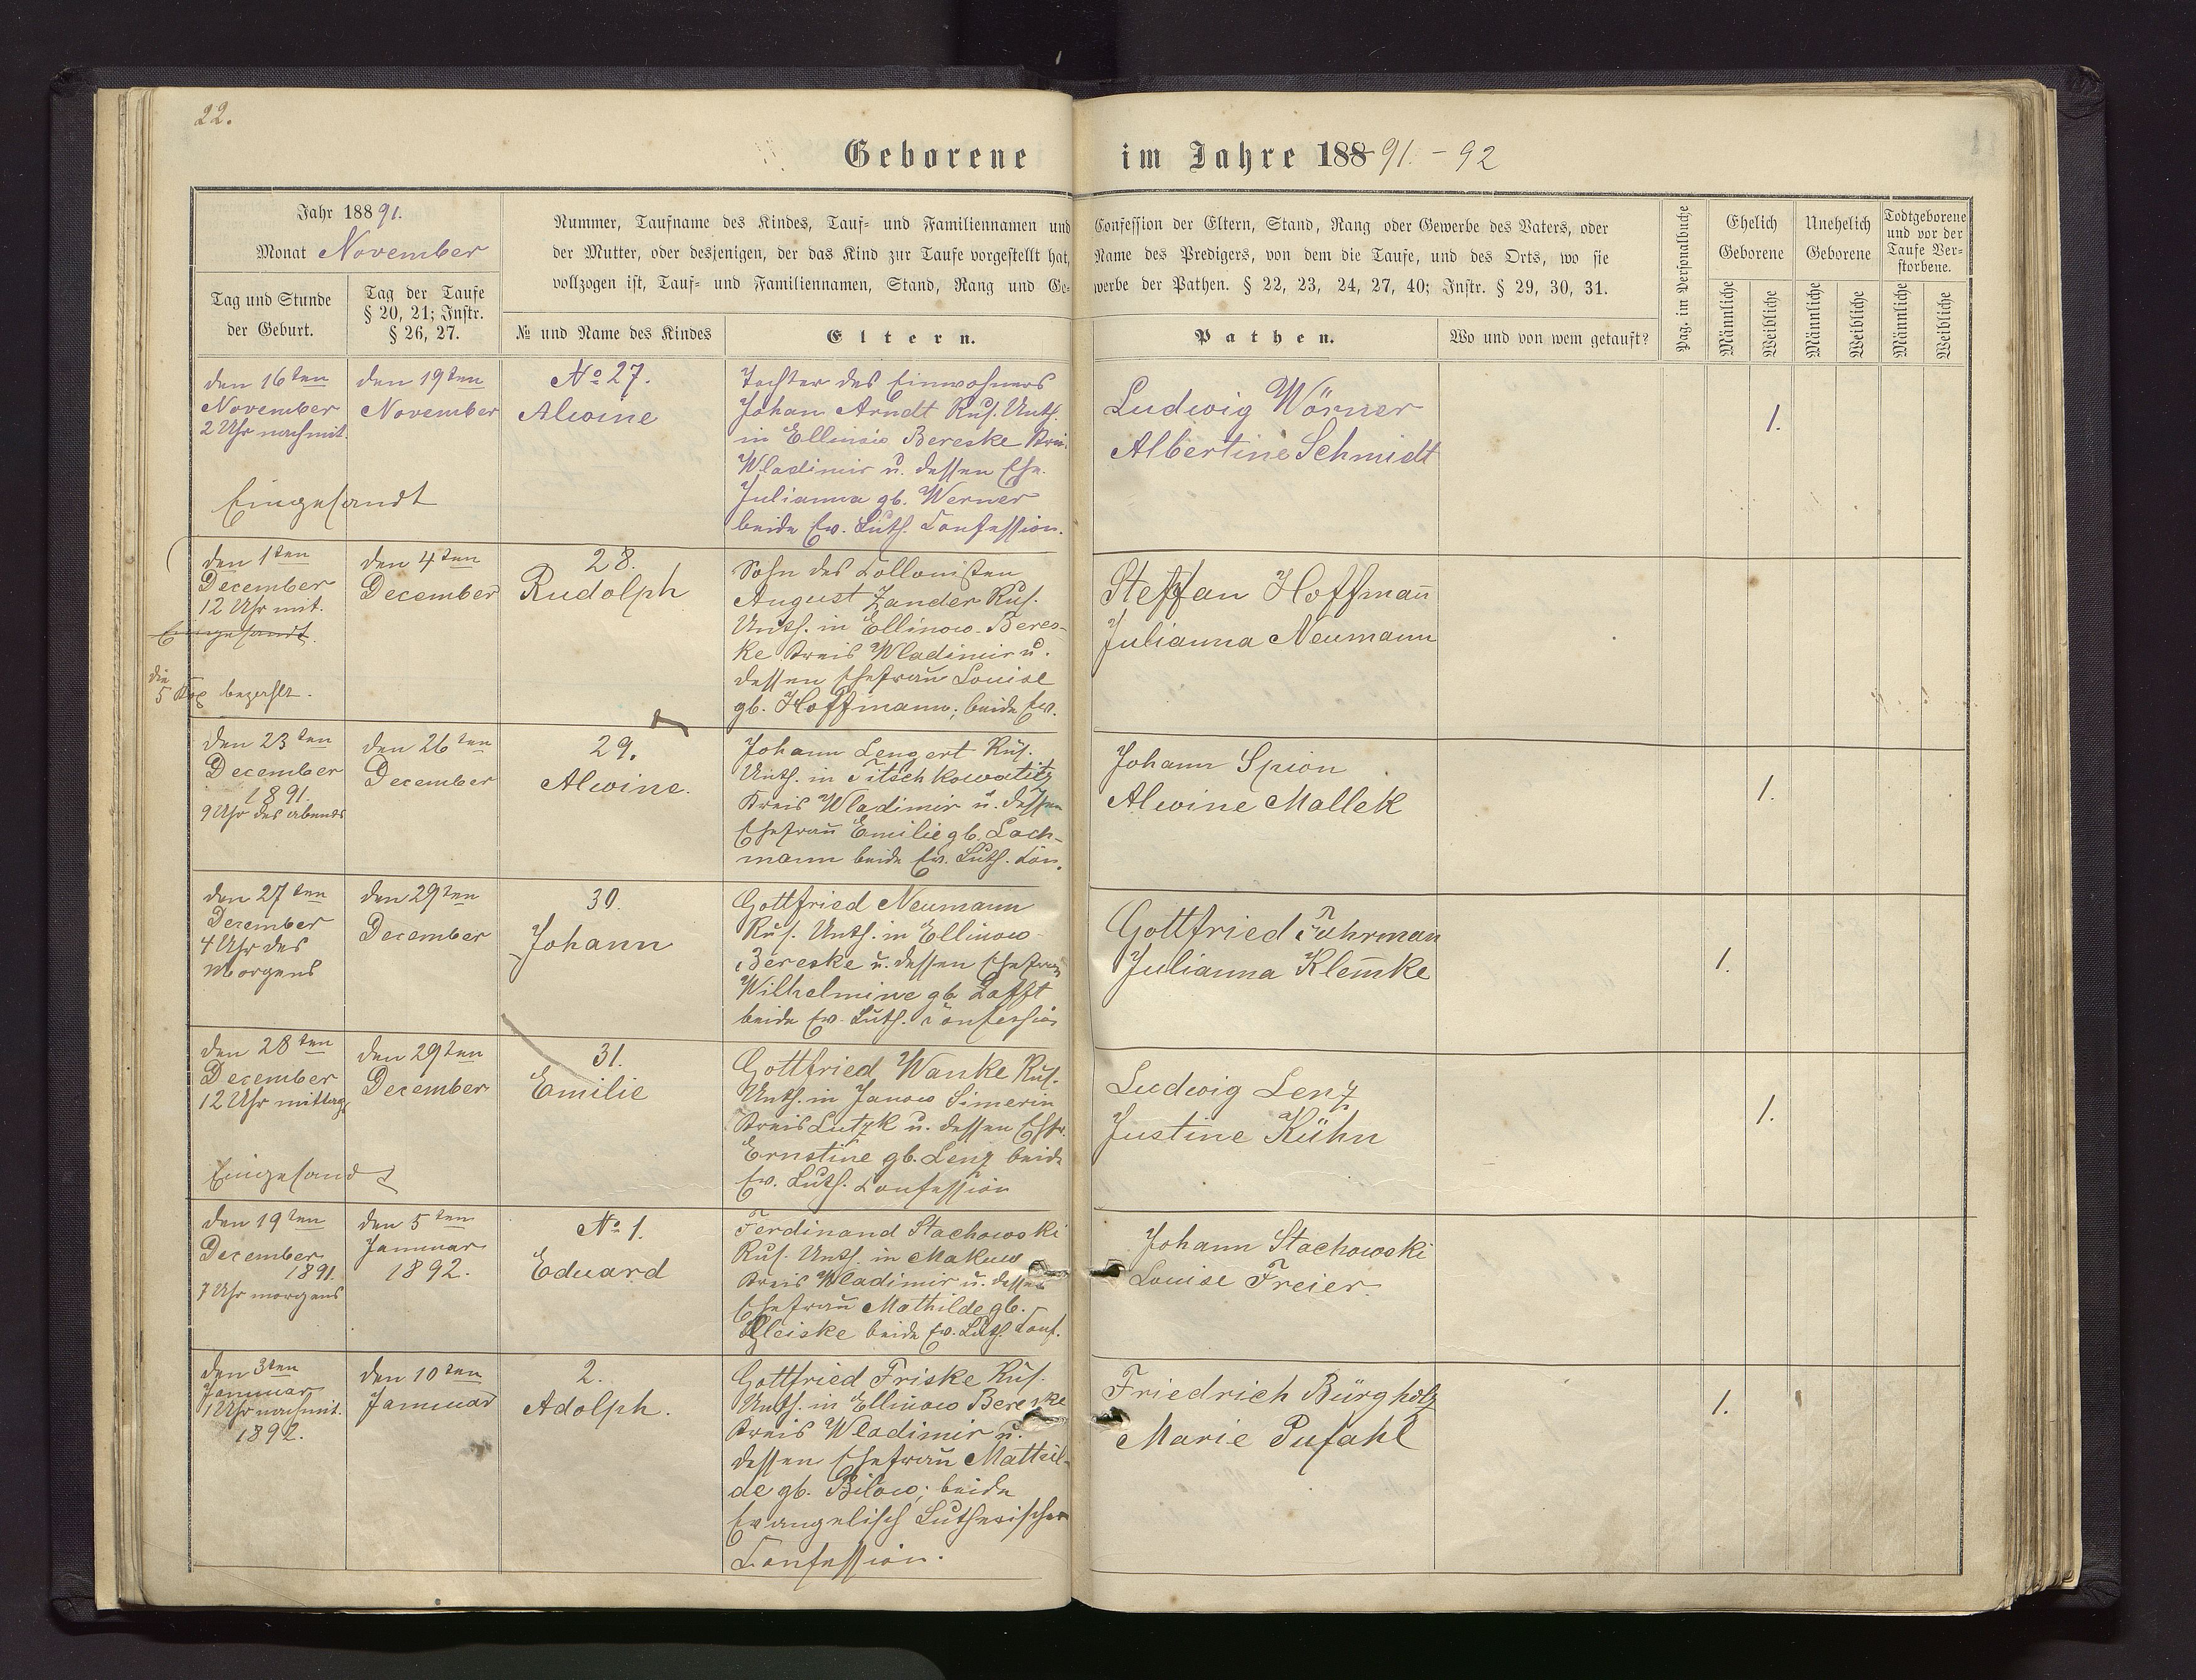 22.
Geborene im Jahre 188 91. - 92
Jahr 188 91.
Monat November
Tag und Stunde
der Geburt.
Tag der Taufe
§ 20, 21; Instr.
§ 26, 27.
Nummer, Taufname des Kindes, Tauf- und Familiennamen und
der Mutter, oder desjenigen, der das Kind zur Taufe vorgestellt hat,
vollzogen ist, Tauf- und Familiennamen, Stand, Rang und Ge-
№ und Name des Kindes
Eltern.
Confession der Eltern, Stand, Rang oder Gewerbe des Vaters, oder
Name des Predigers, von dem die Taufe, und des Orts, wo sie
werbe der Pathen. § 22, 23, 24, 27, 40; Instr. § 29, 30, 31.
Pathen.
Wo und von wem getauft?
Pag. im Personalbuche
Ehelich
Geborene
Unehelich
Geborene
Todtgeborene
und vor der
Taufe Ver-
storbene.
Männliche
Weibliche
Männliche
Weibliche
Männliche
Weibliche
den 16ten
November
2 Uhr nachmit.
Eingesandt
den 19ten
November
No 27.
Alwine
Tochter des Einwohners
Johan Arndt Rus. Unth.
in Ellinow Bereske Krei.
Wladimir u. dessen Ehe.
Julianna gb. Werner
beide Ev. Luth. Confession.
Ludwig Wörner
Albertine Schmidt
1.
den 1ten
December
12 Uhr mit.
Eingesandt.
die
5 Kop bezahlt.
den 4ten
December
28.
Rudolph
Sohn des Collonisten
August Zander Rus.
Unth. in Ellinow-Beres-
ke Kreis Wladimir u.
dessen Ehefrau Louise
gb. Hoffmann; beide Ev.
Steffan Hoffmañ
Julianna Neumann
den 23ten
December
1891.
9 Uhr des abends
den 26ten
December
29.
Alwine.
Johann Lengert Rus.
Unth. in Titschkowatitz
Kreis Wladimir u. dessen
Ehefrau Emilie gb. Lach-
mann beide Ev. Luth. Con.
Johann Spion
Alwine Mallek
1.
den 27ten
December
4 Uhr des
Morgens
den 29ten
December
30.
Johann
Gottfried Neumann
Rus. Unth. in Ellinow-
Bereske u. dessen Ehefrau
Wilhelmine gb.
beide Ev. Luth. Confession
Gottfried Fuhrman
Julianna Klem̄ke
1.
den 28ten
December
12 Uhr mittags
Eingesandt
den 29ten
December
31.
Emilie
Gottfried Wanke Rus.
Unth. in Janow Simerin
Kreis Lutzk u. dessen Ehfr.
Ernstine gb. Lenz beide
Ev. Luth. Confession
Ludwig Lenz
Justine Kühn
1.
den 19ten
December
1891.
7 Uhr morgens
den 5ten
Januar
1892.
No 1.
Eduard
Ferdinand Stachowski
Rus. Unth. in Makuw
Kreis Wladimir u. dessen
Ehefrau Mathilde gb.
beide Ev. Luth. Conf.
Johann Stachowski
Louise Freier.
den 3ten
Januar
1 Uhr nachmit.
1892.
den 10ten
Januar
2.
Adolph.
Gottfried Friske Rus.
Unth. in Ellinow Bereske
Kreis Wladimir u.
dessen Ehefrau Mathil-
de gb. Bilow; beide
Evangelisch Lutherischer
Confession.
Friedrich Bürgholz
Marie Pufahl
1.